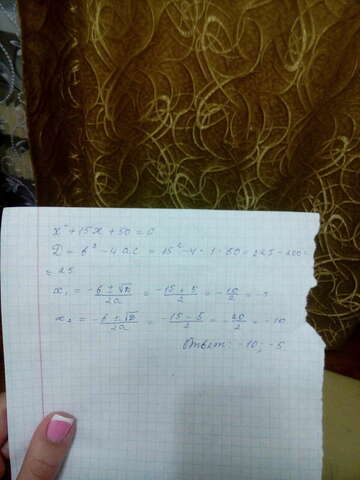 x² + 15x + 50 = 0
D = b² - 4ac = 15² - 4 · 1 · 50 = 225 - 200 =
= 25
x₁ = -b ± √D / 2a = -15 + 5 / 2 = -10 / 2 = -5
x₂ = -b ± √D / 2a = -15 - 5 / 2 = -20 / 2 = -10
Ответ: -10; -5